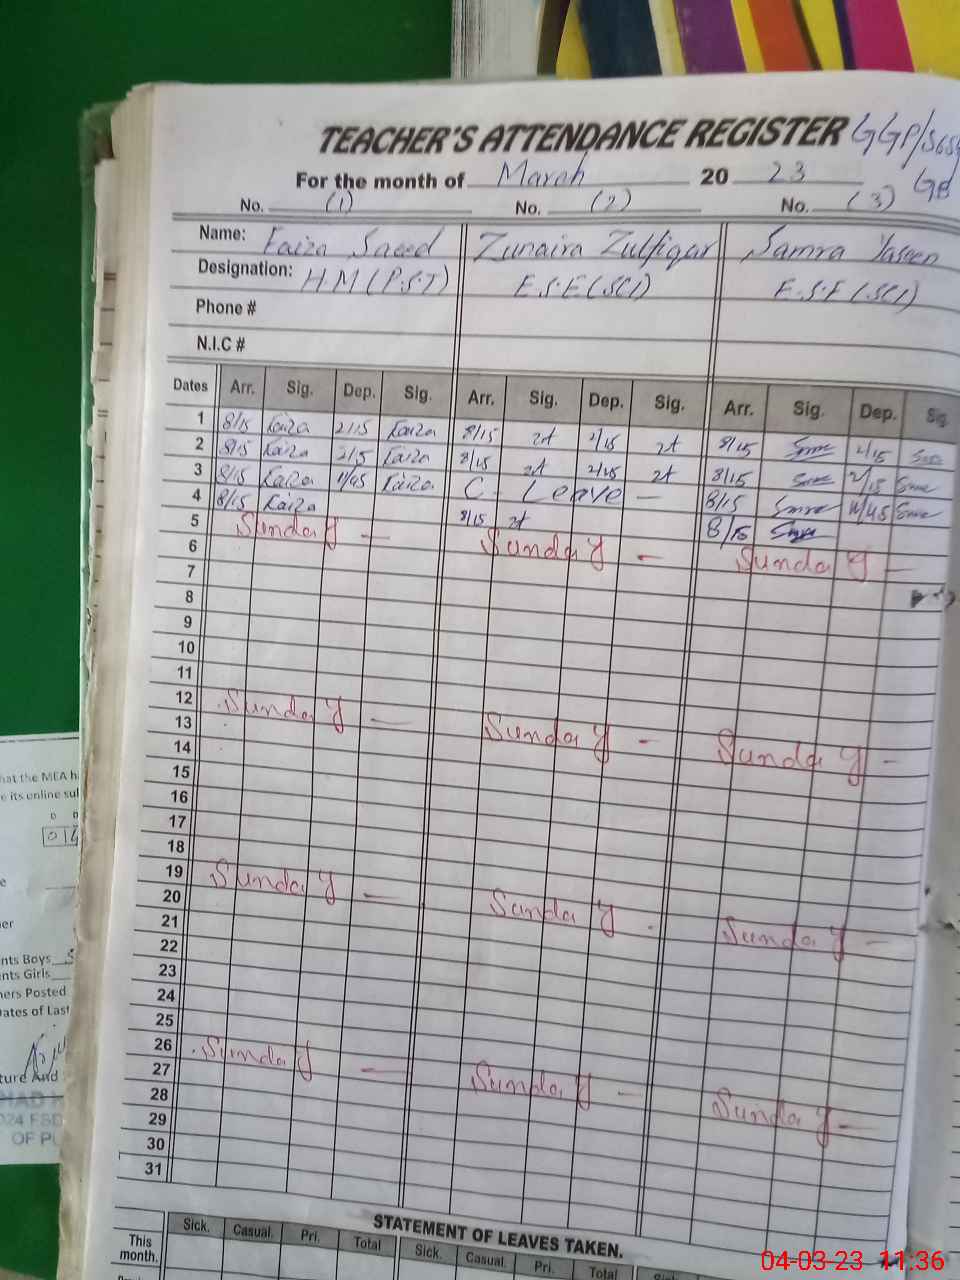 TEACHER'S ATTENDANCE REGISTER GGP/
For the month of March 20 23 GB
No. (1) No. (2) No. (3)
Name: Faiza Saeed Zunaira Zulfiqar Samra Yaseen
Designation: H.M(P.S.T) E.S.E(SCI) E.S.E(SCI)
Phone #
N.I.C #
Dates Arr. Sig. Dep. Sig. Arr. Sig. Dep. Sig. Arr. Sig. Dep. Sig.
1 8/15 Faiza 2/15 Faiza 8/15 2/15 8/15 2/15
2 8/15 Faiza 2/15 Faiza 8/15 2/15 8/15 2/15
3 8/15 Faiza 11/45 Faiza C. Leave — 8/15 11/45
4 8/15 Faiza 8/15 8/15
5 Sunday — Sunday — Sunday —
6
7
8
9
10
11
12 Sunday — Sunday — Sunday —
13
14
15
16
17
18
19 Sunday — Sunday - Sunday —
20
21
22
23
24
25
26 Sunday — Sunday — Sunday —
27
28
29
30
31
STATEMENT OF LEAVES TAKEN.
Sick. Casual. Pri. Total Sick. Casual. Pri. Total
This
month.
hat the MEA h
e its online sul
D D
0
e
er
nts Boys
nts Girls
ners Posted
Dates of Last
ture And
024 FSD
OF PU
04-03-23 11:36